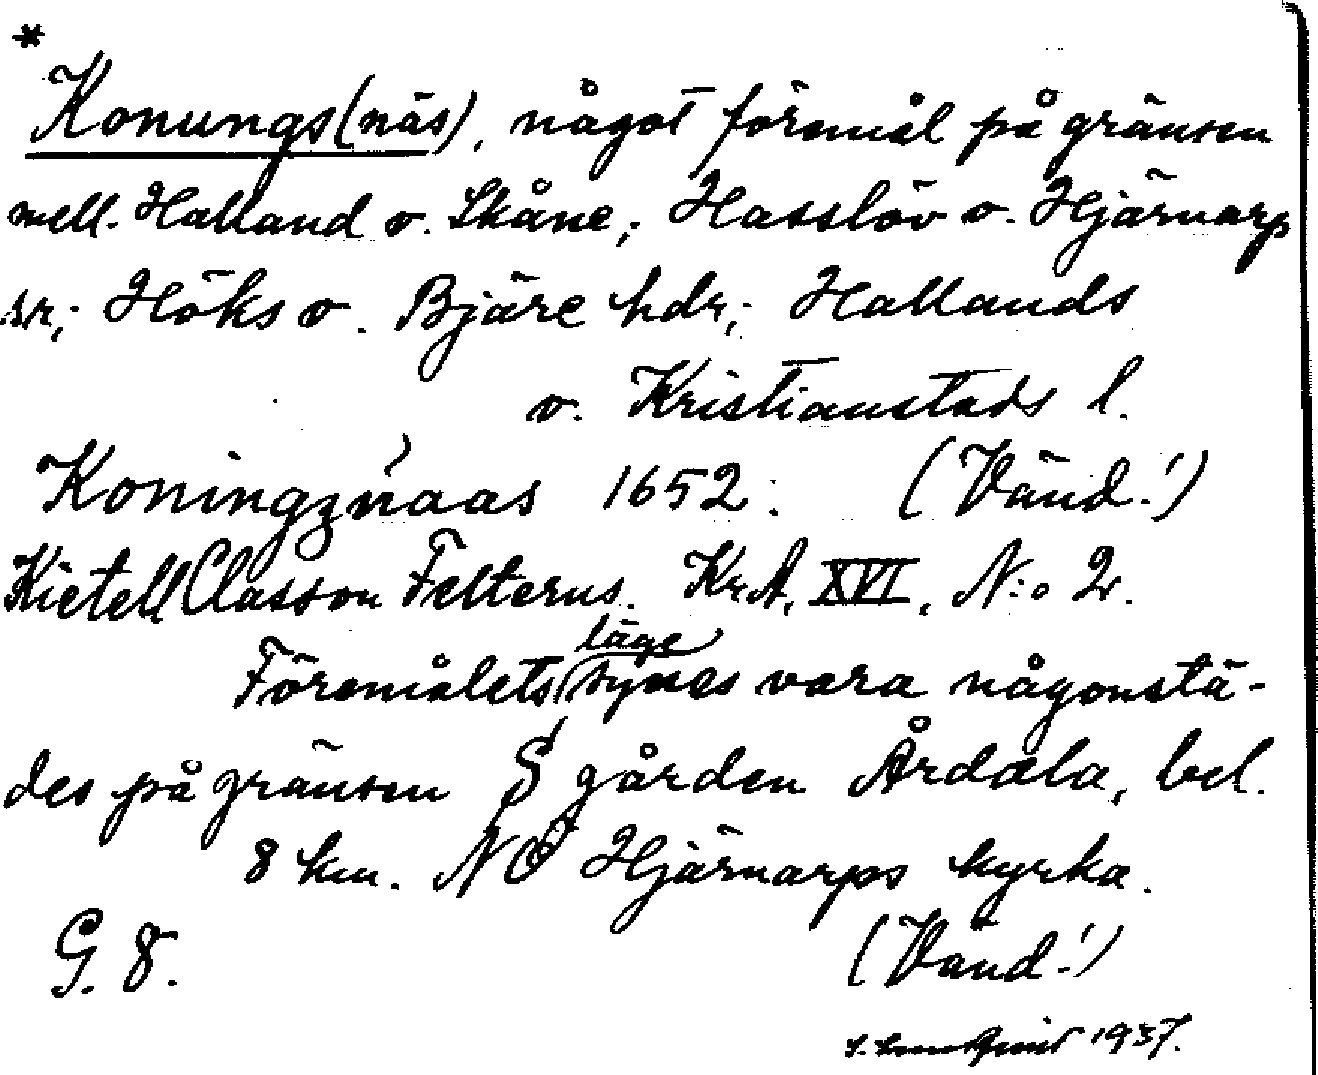 *
Konungs(näs), något föremål på gränsen
mell. Halland o. Skåne; Hasslöv o. Hjärnarp
sr; Höks o. Bjäre hdr; Hallands
o. Kristianstads l.
Koningznaas 1652. (Vänd!)
Kietell Classon Felterus. Kr.A. XVI, N:o 2.
läge
Föremålets synes vara någonstä-
des på gränsen S gården Årdala, bel.
8 km. NÖ Hjärnarps kyrka.
G. 8. (Vänd!)
1937.